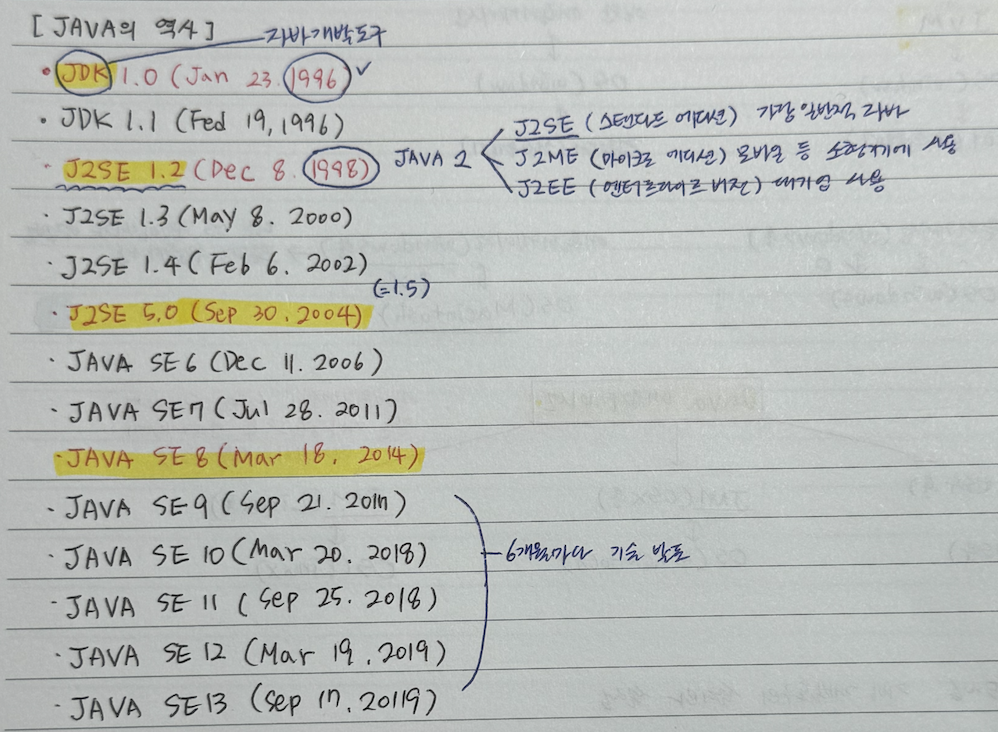 [ JAVA의 역사 ] 자바개발도구
• JDK 1.0 (Jan 23. 1996) ✓
• JDK 1.1 (Fed 19, 1996)
• J2SE 1.2 (Dec 8. 1998) JAVA 2
J2SE (스탠다드 에디션) 가장 일반적 자바
J2ME (마이크로 에디션) 모바일 등 소형기기에 사용
J2EE (엔터프라이즈 버전) 대기업 사용
· J2SE 1.3 (May 8. 2000)
· J2SE 1.4 (Feb 6. 2002)
(=1.5)
· J2SE 5.0 (Sep 30. 2004)
· JAVA SE 6 (Dec 11. 2006)
· JAVA SE7 (Jul 28. 2011)
· JAVA SE 8 (Mar 18. 2014)
· JAVA SE 9 (Sep 21. 2017)
· JAVA SE 10 (Mar 20. 2018) 6개월마다 기술 발표
· JAVA SE 11 (Sep 25. 2018)
· JAVA SE 12 (Mar 19. 2019)
· JAVA SE13 (Sep 17. 20119)